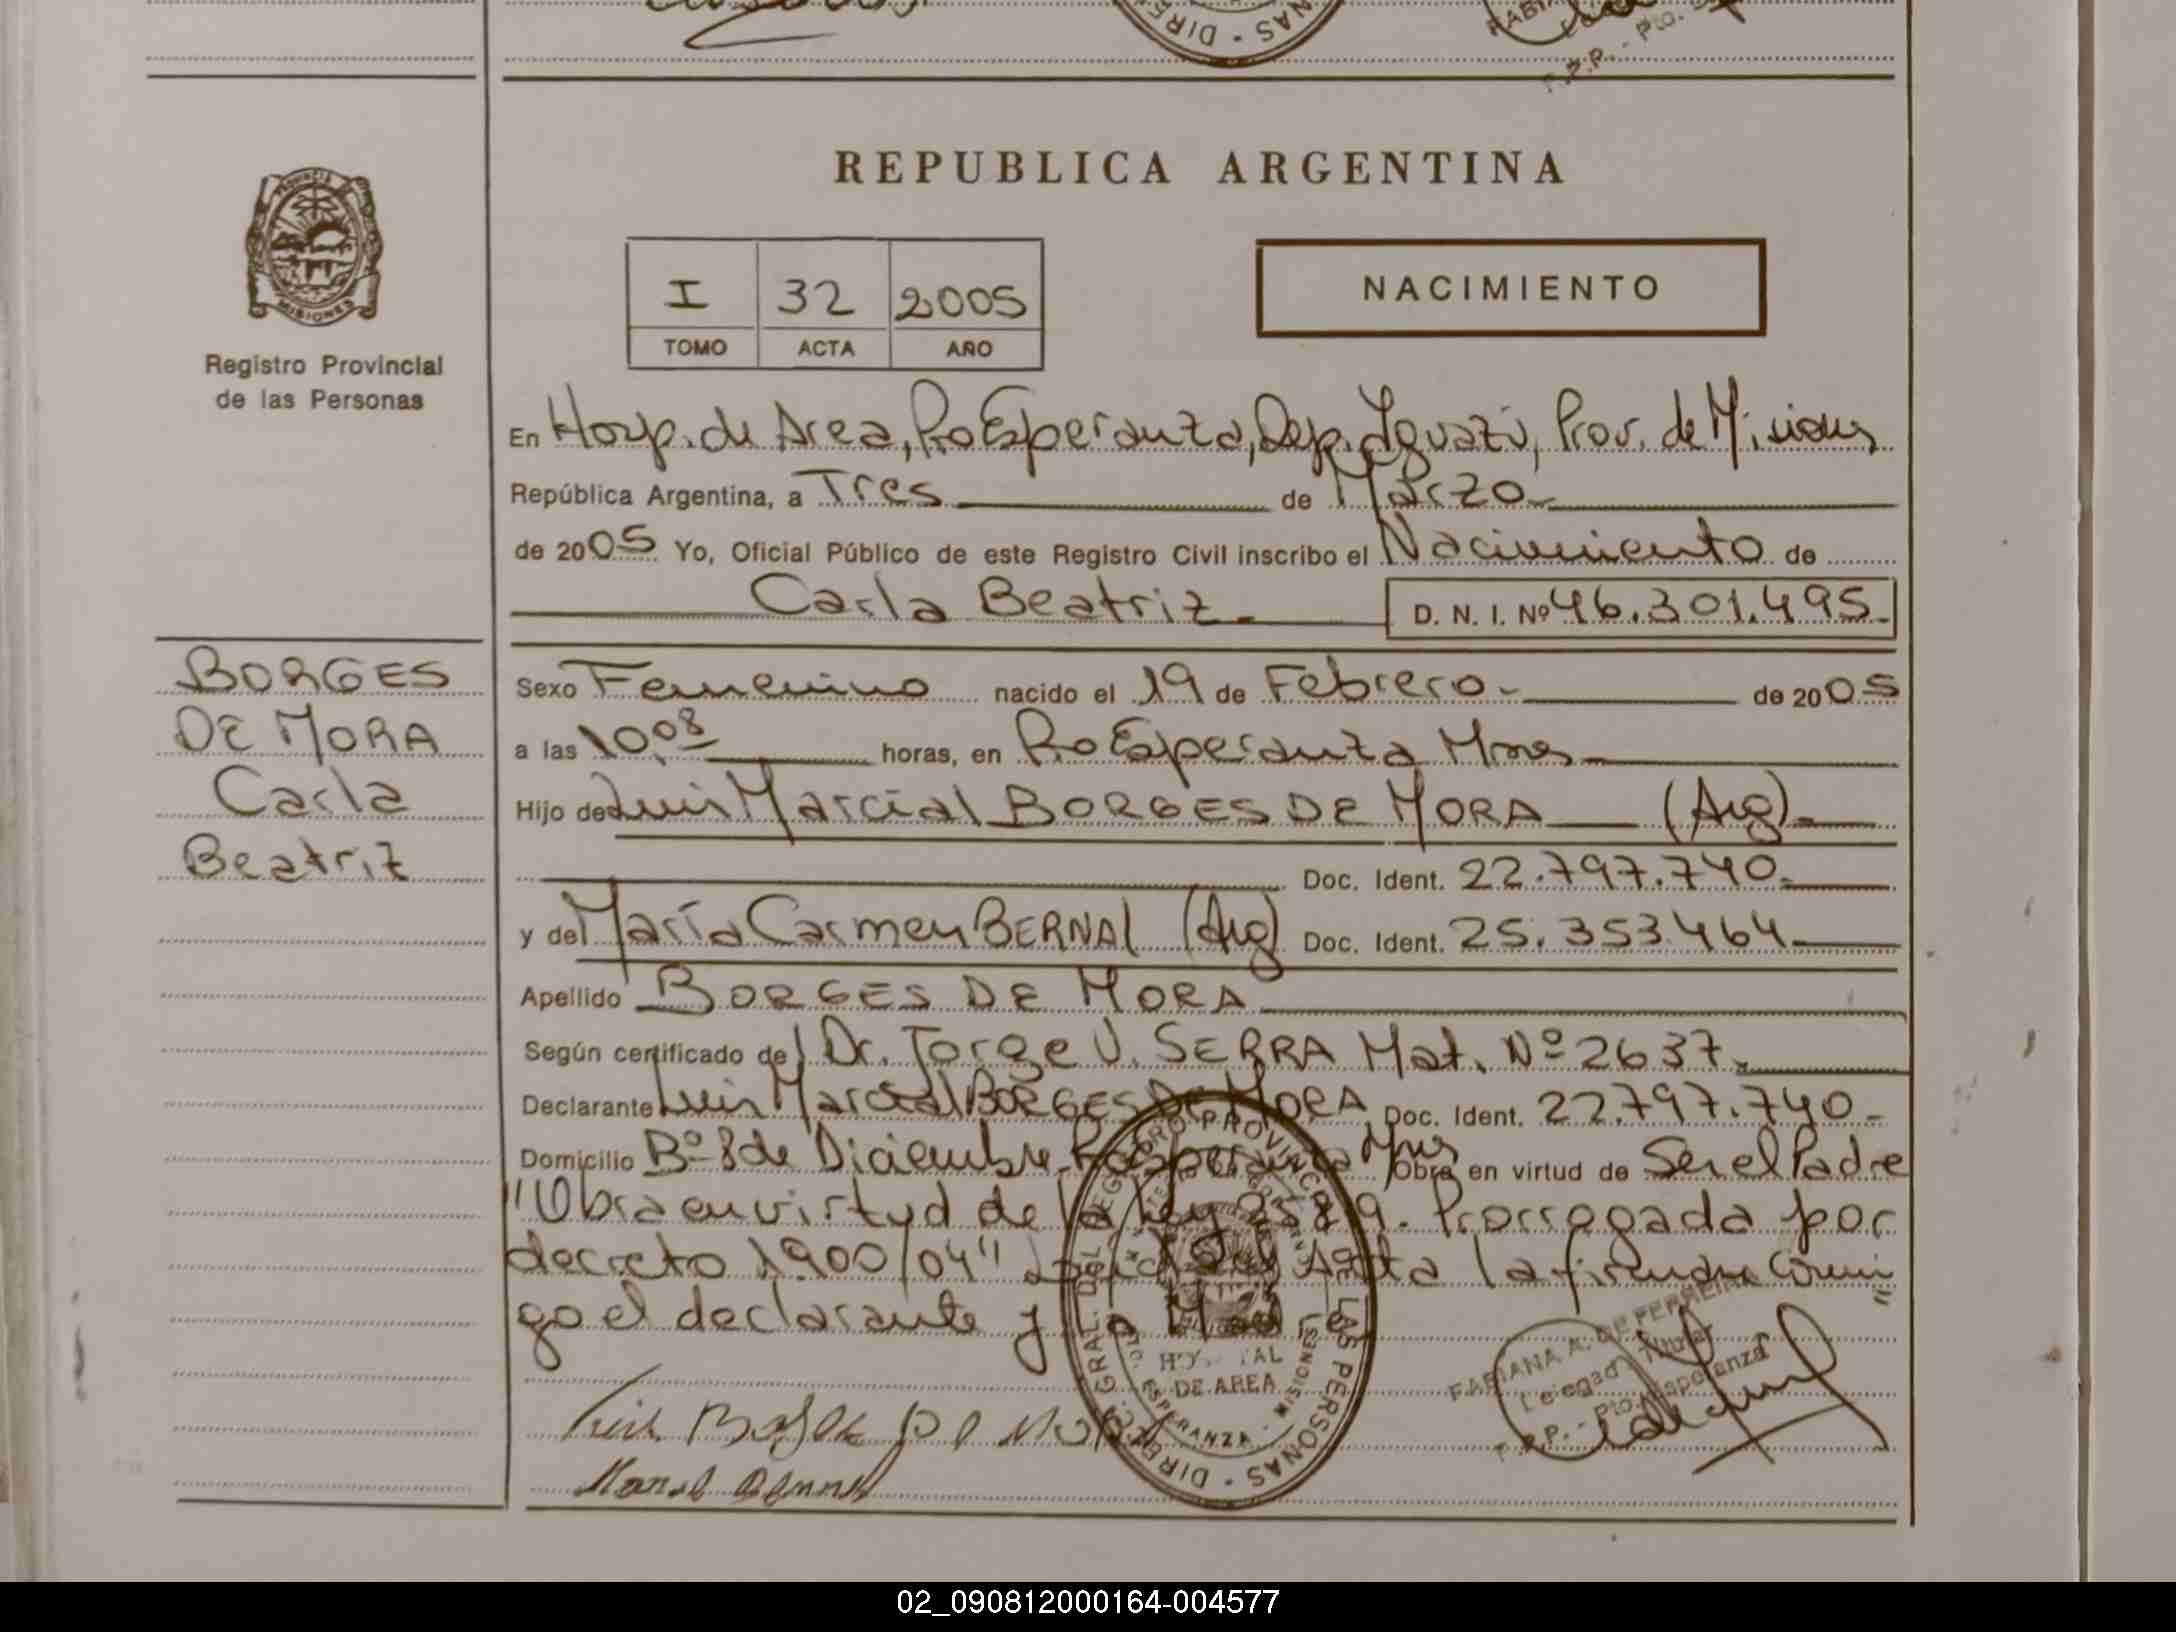 REPUBLICA ARGENTINA
PROVINCIA
MISIONES
Registro Provincial
de las Personas
I 32 2005
TOMO ACTA AÑO
NACIMIENTO
En Hosp. de Area, Pto Esperanza, Dep. Iguazú, Prov. de Misiones
República Argentina, a Tres de Marzo
de 2005 Yo, Oficial Público de este Registro Civil inscribo el Nacimiento de
Carla Beatriz D. N. I. Nº 46.301.495
BORGES
DE MORA
Carla
Beatriz
Sexo Femenino nacido el 19 de Febrero de 2005
a las 10.08 horas, en Pto Esperanza Mnes
Hijo de Luis Marcial BORGES DE MORA (Arg)
Doc. Ident. 22.797.740
y de María Carmen BERNAL (Arg) Doc. Ident. 25.353.464
Apellido BORGES DE MORA
Según certificado de Dr. Jorge V. SERRA Mat. Nº 2637
Declarante Luis Marcial BORGES DE MORA Doc. Ident. 22.797.740
Domicilio Bº 8 de Diciembre Pto Esperanza Mnes Obra en virtud de Ser el Padre
"Obra en virtud de la Ley Prorrogada por
decreto 1900/04" Leida el Acta la firman conmi
go el declarante y la Madre
HOSPITAL
DE AREA
ESPERANZA - MISIONES
DIREC. GRAL. DEL REGISTRO PROVINCIAL DE LAS PERSONAS
FABIANA A. DE FERREIRA
Delegada Titular
R.P.P. - Pto. Esperanza
02_090812000164-004577